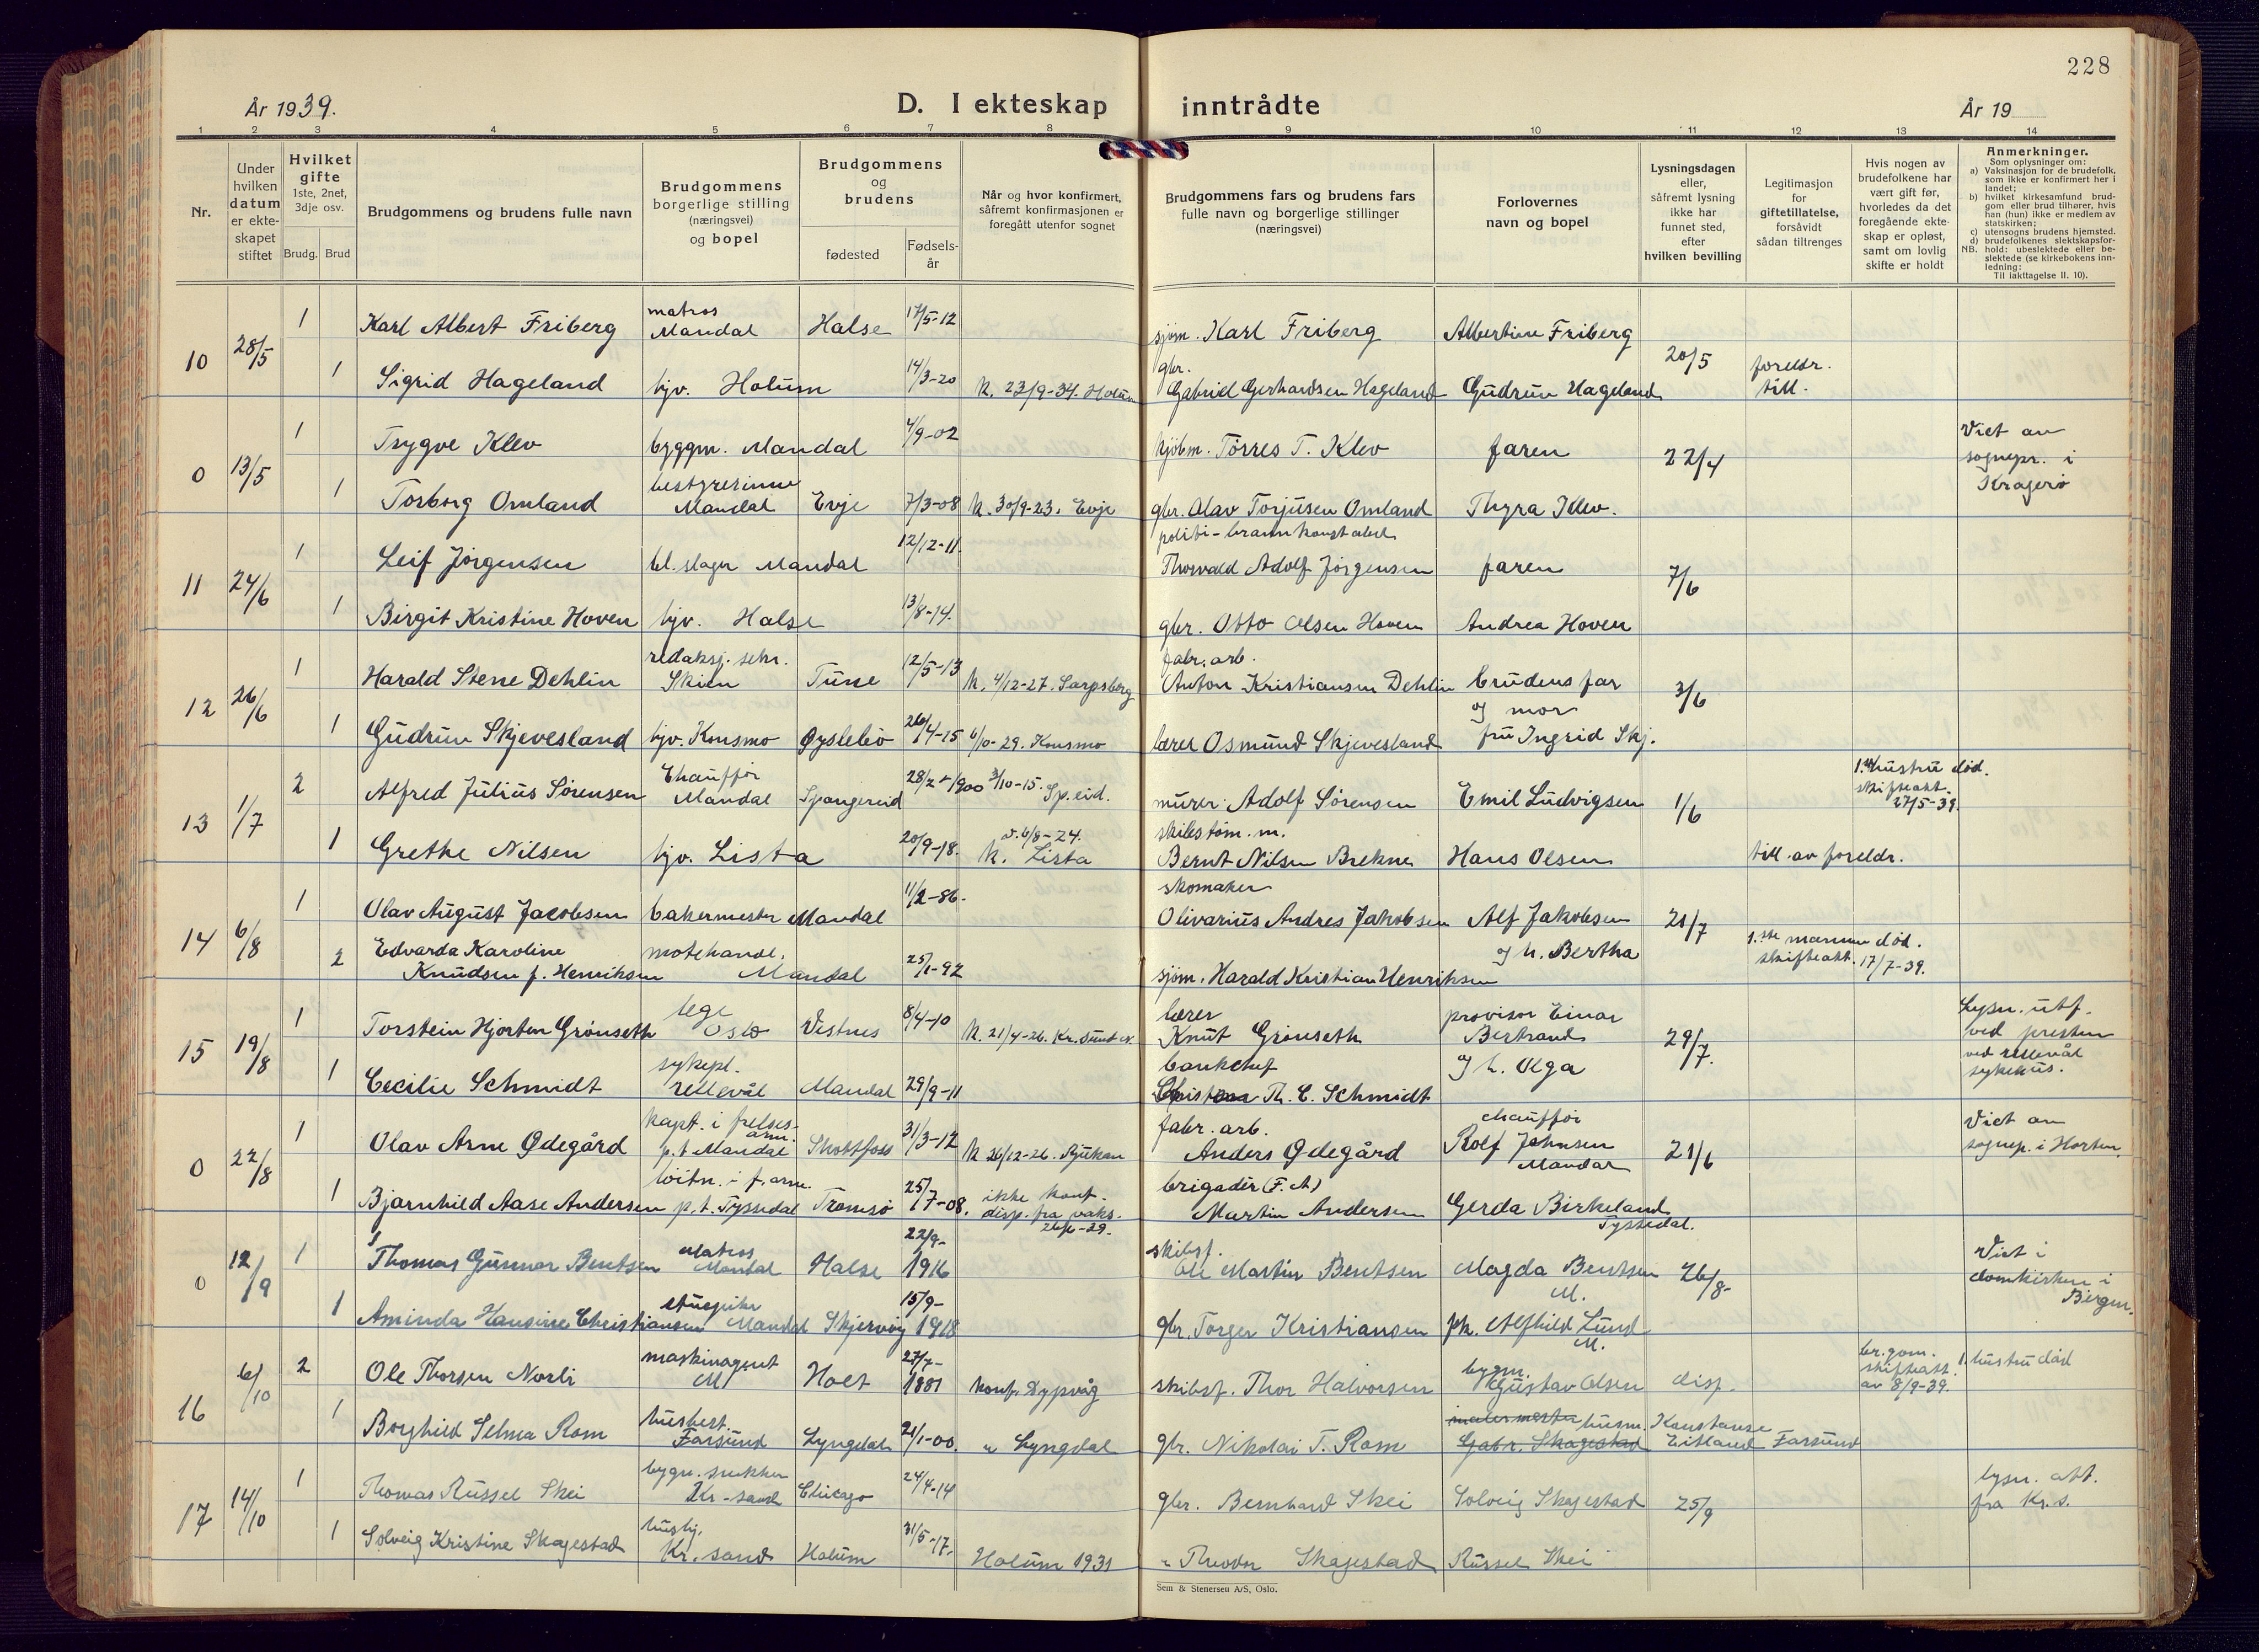 228
År 1939.
D. I ekteskap inntrådte
År 19
1 2 3 4 5 6 7 8 9 10 11 12 13 14
Nr.
Under hvilken datum er ekteskapet stiftet
Hvilket gifte
1ste, 2net, 3dje osv.
Brudg. Brud
Brudgommens og brudens fulle navn
Brudgommens borgerlige stilling (næringsvei) og bopel
Brudgommens og brudens
fødested
Fødsels-år
Når og hvor konfirmert, såfremt konfirmasjonen er foregått utenfor sognet
Brudgommens fars og brudens fars fulle navn og borgerlige stillinger (næringsvei)
Forlovernes navn og bopel
Lysningsdagen eller, såfremt lysning ikke har funnet sted, efter hvilken bevilling
Legitimasjon for giftetillatelse, forsåvidt sådan tiltrenges
Hvis nogen av brudefolkene har vært gift før, hvorledes da det foregående ekteskap er opløst, samt om lovlig skifte er holdt
Anmerkninger.
Som oplysninger om:
a) Vaksinasjon for de brudefolk, som ikke er konfirmert her i landet;
b) hvilket kirkesamfund brudgom eller brud tilhører, hvis han (hun) ikke er medlem av statskirken;
c) utensogns brudens hjemsted.
d) brudefolkenes slektskapsforhold: ubeslektede eller beslektede (se kirkebokens innledning:
NB. Til iakttagelse II. 10).
10 28/5 1 Karl Albert Friberg matros Mandal Halse 17/5-12 sjøm. Karl Friberg Albertine Friberg 20/5
1 Sigrid Hageland hjv. Holum 14/3-20 k. 23/9-34. Holum gbr. Gabriel Gerhardsen Hageland Gudrun Hageland foreldr. till.
0 13/5 1 Trygve Klev byggm. Mandal 4/9-02 kjøbm. Tørres T. Klev faren 22/4 Viet av sognepr. i Kragerø
1 Torborg Omland bestyrerinne Mandal Evje 7/3-08 k. 30/9-23. Evje gbr. Olav Torjusen Omland Thyra Klev.
11 24/6 1 Leif Jørgensen bl. slager Mandal 12/12-11. politi-brannkonstabel Thorvald Adolf Jørgensen faren 7/6
1 Birgit Kristine Hoven hjv. Halse 13/8-14. gbr. Otto Olsen Hoven Andrea Hoven
12 26/6 1 Harald Stene Dehlin redaksj. sekr. Skien Tune 12/5-13 k. 4/12-27. Sarpsborg fabr. arb. Anton Kristiansen Dehlin brudens far og mor 3/6
1 Gudrun Skjevesland hjv. Konsmo Øyslebø 26/4-15 6/10-29. Konsmo lærer Osmund Skjevesland fru Ingrid Skj.
13 1/7 2 Alfred Julius Sørensen Chauffør Mandal Spangereid 28/2-1900 3/10-15. Sp.eid. murer Adolf Sørensen Emil Ludvigsen 1/6 1. hustru død. skifteatt. 27/5-39.
1 Grethe Nilsen hjv. Lista 20/9-18. k. Lista skibstøm.m. Bernt Nilsen Brekne Hans Olsen till. av foreldr.
14 6/8 1 Olav August Jacobsen bakermester Mandal 11/2-86. skomaker Olivarius Andres Jakobsen Alf Jakobsen 21/7
2 Edvarda Karoline Knudsen f. Henriksen motehandl. Mandal 25/1-92 sjøm. Harald Kristian Henriksen og h. Bertha 1.ste mannen død. skifteatt. 17/7-39.
15 19/8 1 Torstein Hjorten Grønseth lege Oslo Vestnes 8/4-10 k. 21/4-26. Kr.sund N. lærer Knut Grønseth provisor Einar Bertrand 29/7. Lysn. utf. ved presten ved Ullevål sykehus.
1 Cecilie Schmidt sykepl. Ullevål Mandal 29/9-11 bankchef Th. C. Schmidt og h. Olga
0 22/8 1 Olav Arne Ødegård kapt. i frelses-arm. p.t. Mandal Skotfoss 31/3-12 k 26/12-26. Rjukan fabr. arb. Anders Ødegård chauffør Rolf Johnsen Mandal 21/6 Viet av sognep. i Horten.
1 Bjørnhild Aase Andersen løitn. i f.arm. p.t. Tyssedal Tromsø 25/7-08. ikke konf. disp. fra vaks. brigadér (F.A) Martin Andersen Gerda Birkeland Tyssedal.
0 12/9 1 Thomas Gunnar Bentsen Matros Mandal Halse 22/9-1916 skibsf. Ole Martin Bentsen Magda Bentsen M. 26/8- Viet i domkirken i Bergen.
1 Aminda Hansine Christiansen Mandal Skjervøy 15/9-1918 gbr. Torger Kristiansen frk. Alfhild Lund M.
16 6/10 2 Ole Thorsen Norli maskinagent M Holt 27/7-1881 konf. Dypvåg skibsf. Thor Halvorsen bygm. Gustav Olsen disp. br.gom. skifteatt. av 8/9-39. 1. hustru død
1 Borghild Selma Rom husbest. Farsund Lyngdal 21/1-00. " Lyngdal gbr. Nikolai T. Rom malermester Gabr. Skagestad husm. Konstanse Eitland Farsund
17 14/10 1 Thomas Russel Skei bygn. snekker Kr-sand Chicago 24/4-14 gbr. Bernhard Skei Solveig Skagestad 25/9 lysn. att. fra Kr.s.
1 Solveig Kristine Skagestad hushj. Kr. sand Holum 31/5-17. Holum 1931 " Theodor Skagestad Russel Skei
Sem & Stenersen A/S, Oslo.